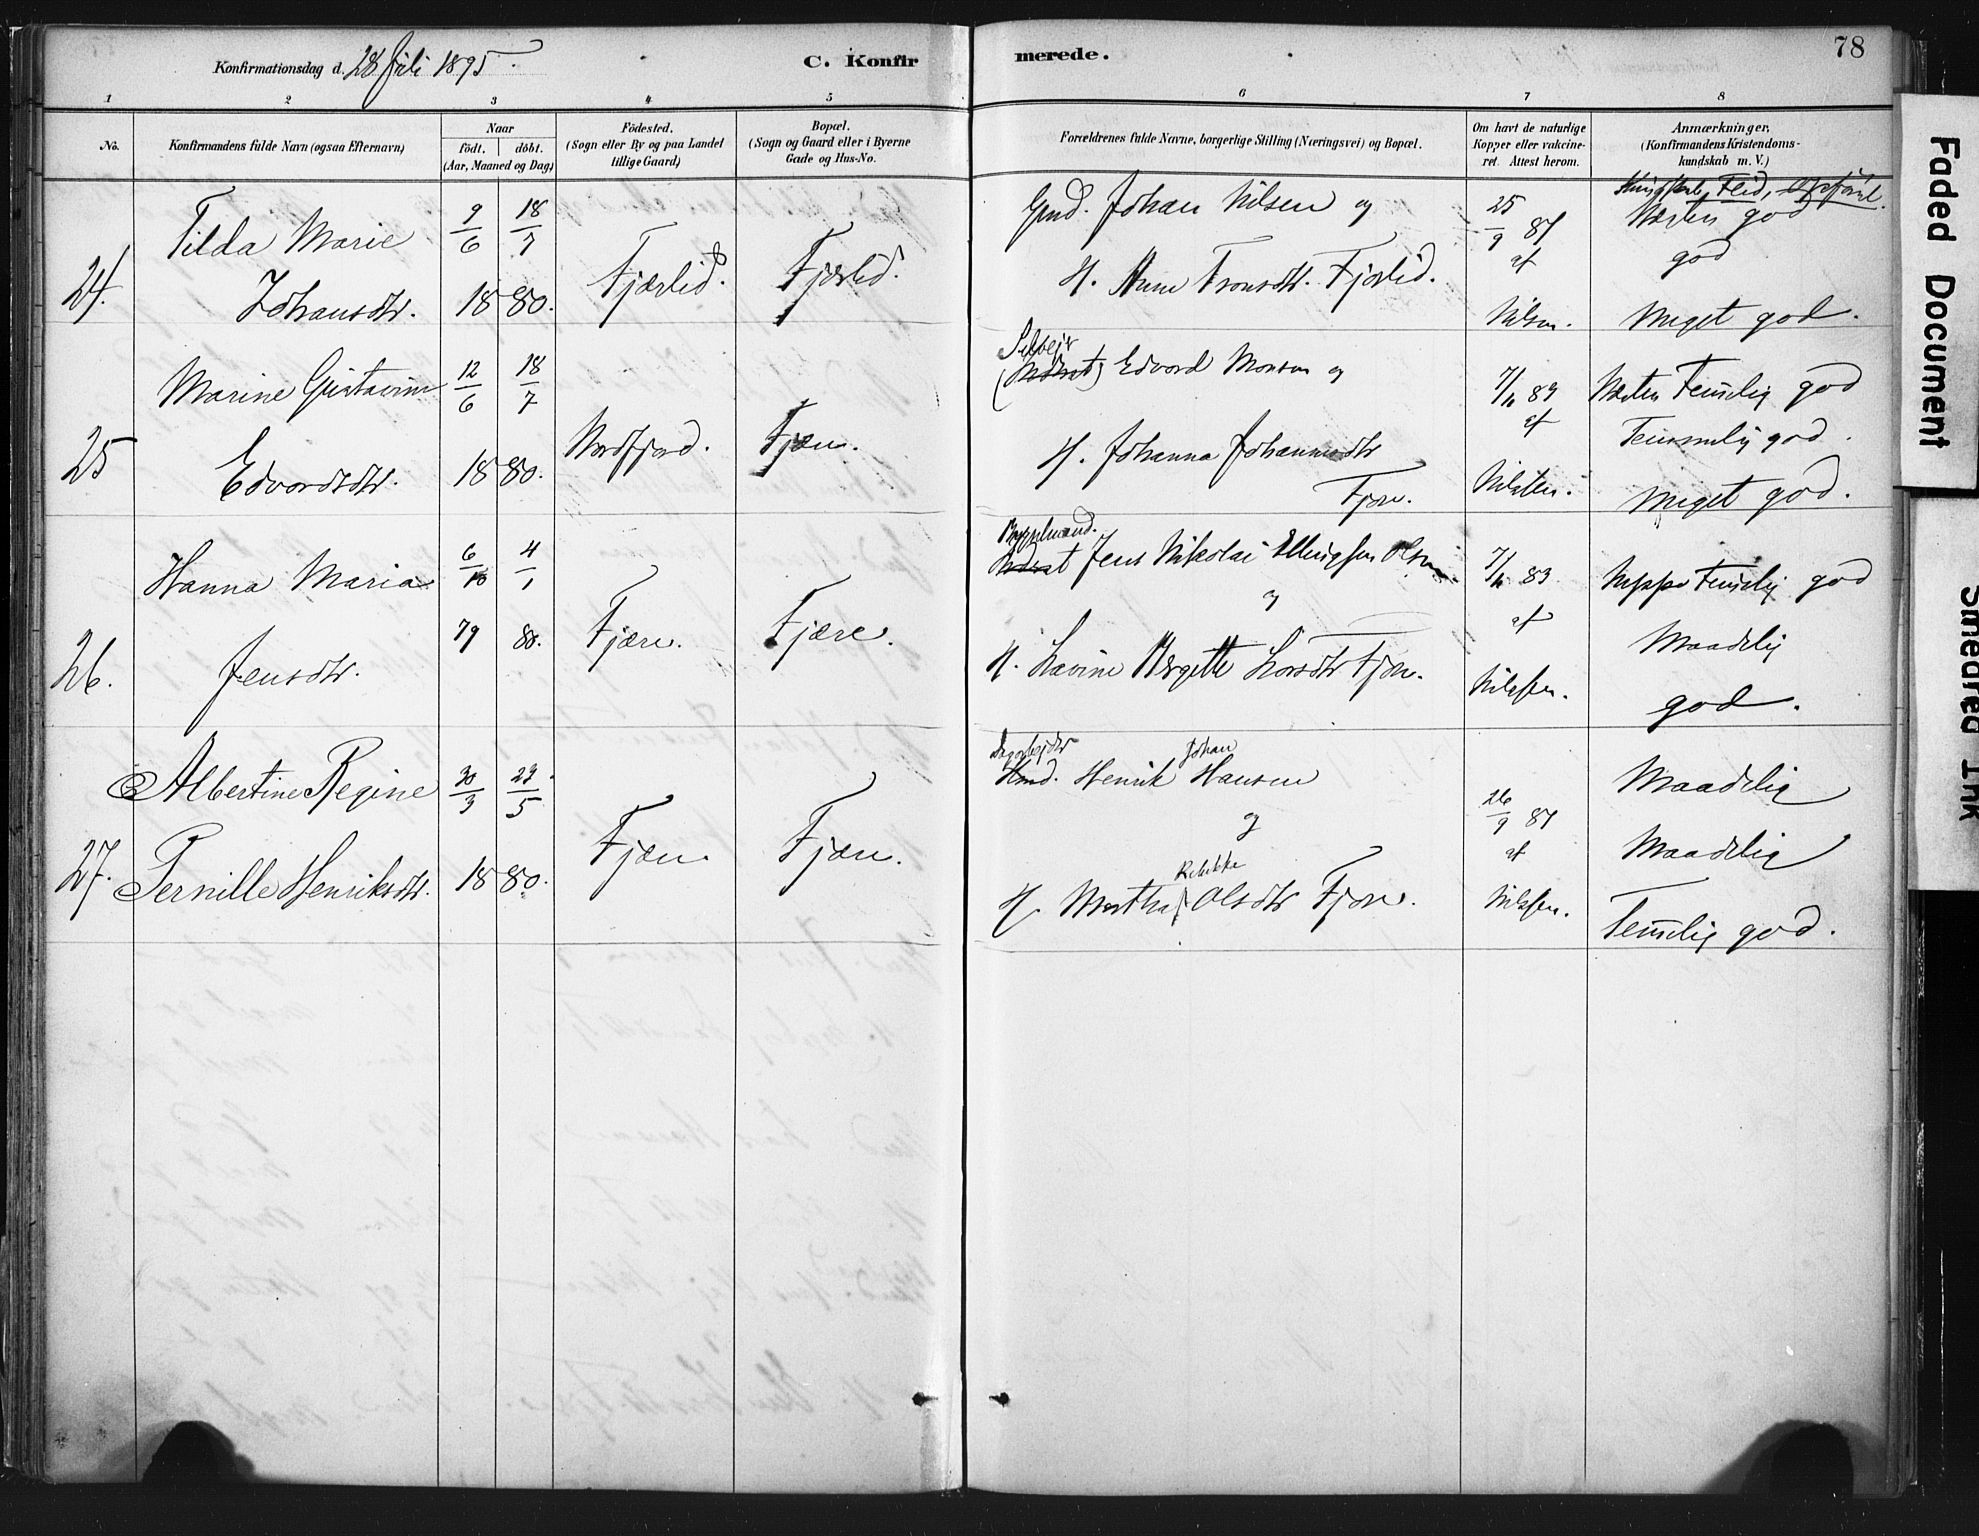 Konfirmationsdag d. 28 Juli 1895.
C. Konfir
merede.
78
1 2 3 4 5 6 7 8
No.
Konfirmandens fulde Navn (ogsaa Efternavn)
Naar
födt. döbt.
(Aar, Maaned og Dag)
Födested.
(Sogn eller By og paa Landet
tillige Gaard)
Bopæl.
(Sogn og Gaard eller i Byerne
Gade og Hus-No.
Forældrenes fulde Navne, borgerlige Stilling (Næringsvei) og Bopæl.
Om havt de naturlige
Kopper eller vakcine-
ret. Attest herom.
Anmærkninger,
(Konfirmandens Kristendoms-
kundskab m. V.)
24.
Tilda Marie
Johansdtr.
9/6 18/7
1880.
Fjærlid.
Fjærlid.
Gmd. Johan Nilsen og
H. Anne Tronsdtr. Fjærlid.
25/9 87
af
Nilsen.
Næsten god
god
Meget god.
25
Marine Gustavine
Edvardsdtr.
12/6 18/7
1880.
Nordfjord.
Fjære.
Selvejr
Edvard Monsen og
H. Johanna Johannesdtr
Fjære.
83
af
Nilssen.
Næsten Temelig god
Temmelig god.
Meget god.
26.
Hanna Maria
Jensdtr.
6/10 4/1
79 80.
Fjære.
Fjære.
Jens Nikolai Ellingsen Olsen
og
H. Lavine Bergitte Larsdtr Fjære.
83
af
Nilssen.
Neppe Temelig god
Maadelig
god.
27.
Albertine Regine
Pernille Henriksdtr.
30/3 23/5
1880.
Fjære.
Fjære.
Johan
Henrik Hansen
og
Rebekka
H. Martha Olsdtr Fjære.
26/9 87
af
Nilssen.
Maadelig
Maadelig
Temelig god.
Faded Document
Smeared Ink